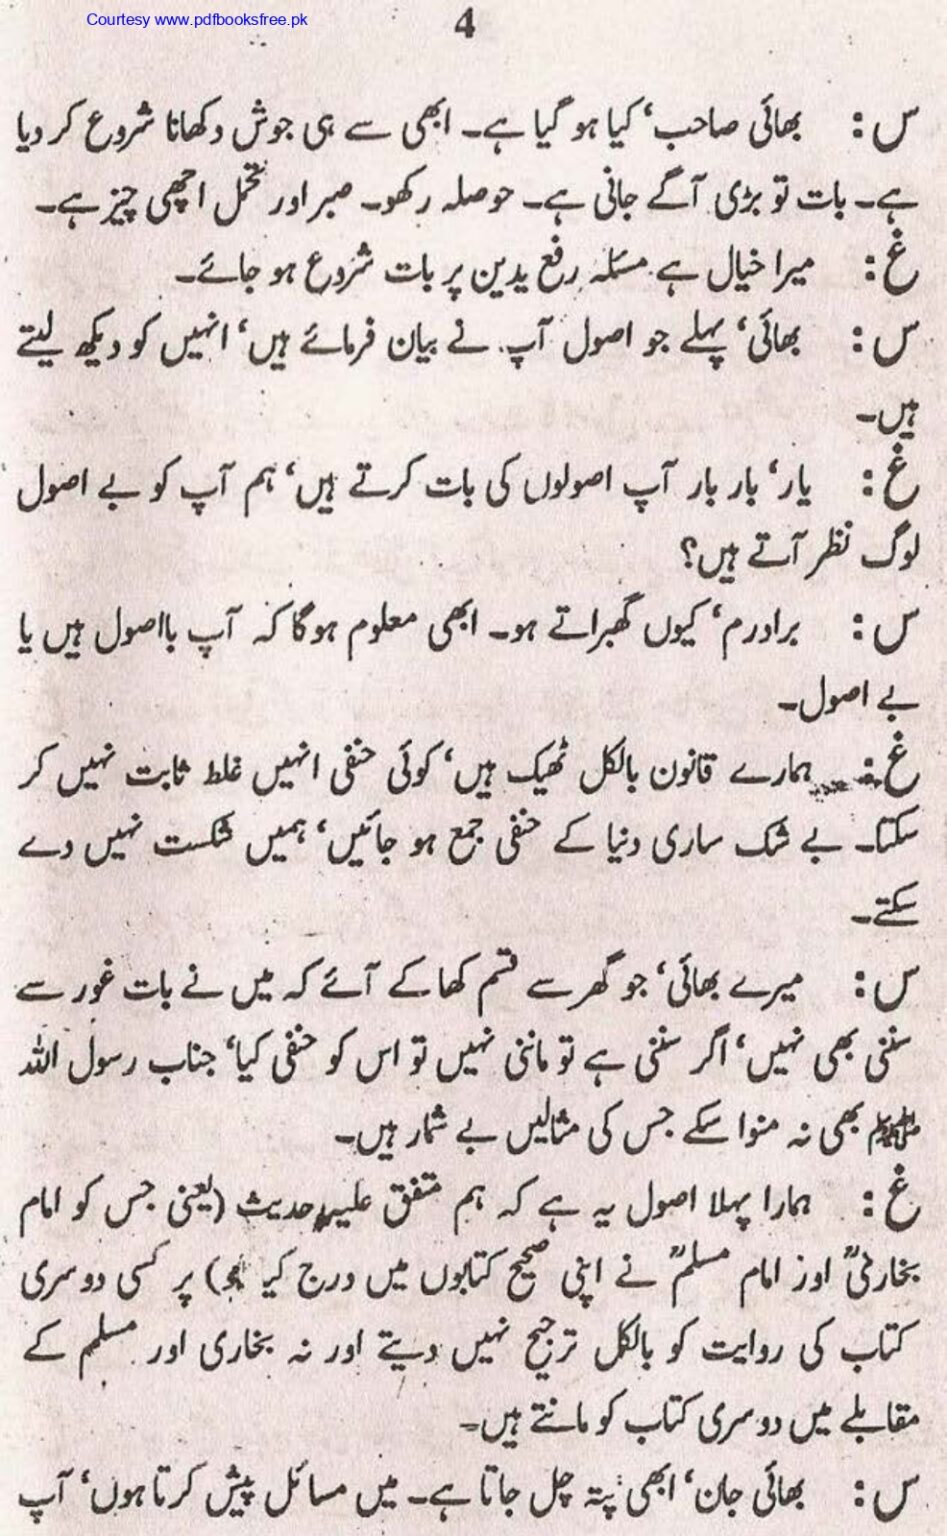 Courtesy www.pdfbooksfree.pk
4
س : بھائی صاحب، کیا ہو گیا ہے۔ ابھی سے ہی جوش دکھانا شروع کر دیا
ہے۔ بات تو بڑی آگے جانی ہے۔ حوصلہ رکھو۔ صبر اور تحمل اچھی چیز ہے۔
غ : میرا خیال ہے مسئلہ رفع یدین پر بات شروع ہو جائے۔
س : بھائی، پہلے جو اصول آپ نے بیان فرمائے ہیں، انہیں کو دیکھ لیتے
ہیں۔
غ : یار، بار بار آپ اصولوں کی بات کرتے ہیں، ہم آپ کو بے اصول
لوگ نظر آتے ہیں؟
س : برادرم، کیوں گھبراتے ہو۔ ابھی معلوم ہوگا کہ آپ بااصول ہیں یا
بے اصول۔
غ : ہمارے قانون بالکل ٹھیک ہیں، کوئی حنفی انہیں غلط ثابت نہیں کر
سکتا۔ بے شک ساری دنیا کے حنفی جمع ہو جائیں، ہمیں شکست نہیں دے
سکتے۔
س : میرے بھائی، جو گھر سے قسم کھا کے آئے کہ میں نے بات غور سے
سننی بھی نہیں، اگر سننی ہے تو ماننی نہیں تو اس کو حنفی کیا، جناب رسول اللہ
ﷺ بھی نہ منوا سکے جس کی مثالیں بے شمار ہیں۔
غ : ہمارا پہلا اصول یہ ہے کہ ہم متفق علیہ حدیث (یعنی جس کو امام
بخاریؒ اور امام مسلمؒ نے اپنی صحیح کتابوں میں درج کیا ہو) پر کسی دوسری
کتاب کی روایت کو بالکل ترجیح نہیں دیتے اور نہ بخاری اور مسلم کے
مقابلے میں دوسری کتاب کو مانتے ہیں۔
س : بھائی جان، ابھی پتہ چل جاتا ہے۔ میں مسائل پیش کرتا ہوں، آپ